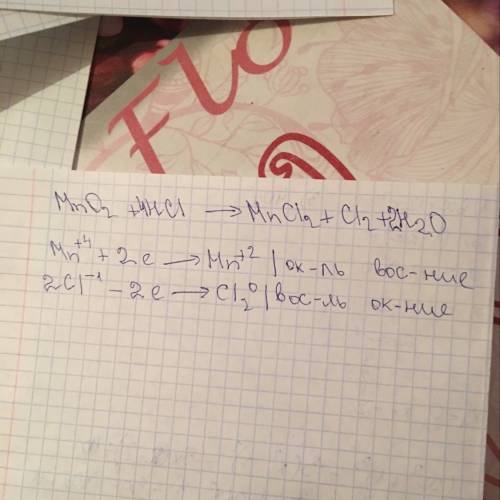 Flo
MnO₂ + 4HCl → MnCl₂ + Cl₂ + 2H₂O
Mn⁺⁴ + 2e → Mn⁺² | ок-ль вос-ние
2Cl⁻¹ - 2e → Cl₂⁰ | вос-ль ок-ние